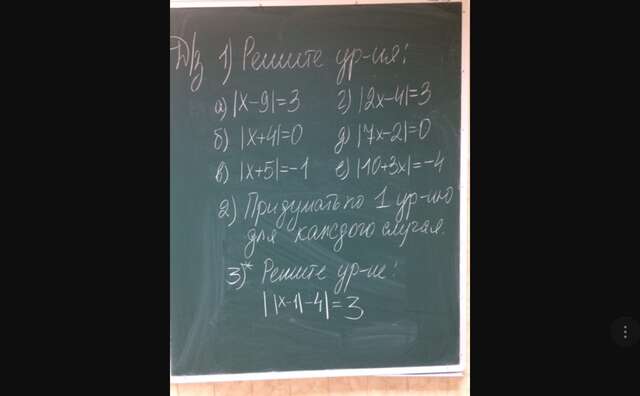 Д/з 1) Решите ур-ия:
а) |x-9|=3 г) |2x-4|=3
б) |x+4|=0 д) |7x-2|=0
в) |x+5|=-1 е) |10+3x|=-4
2) Придумать по 1 ур-ию
для каждого случая.
3)* Решите ур-ие:
||x-1|-4|=3